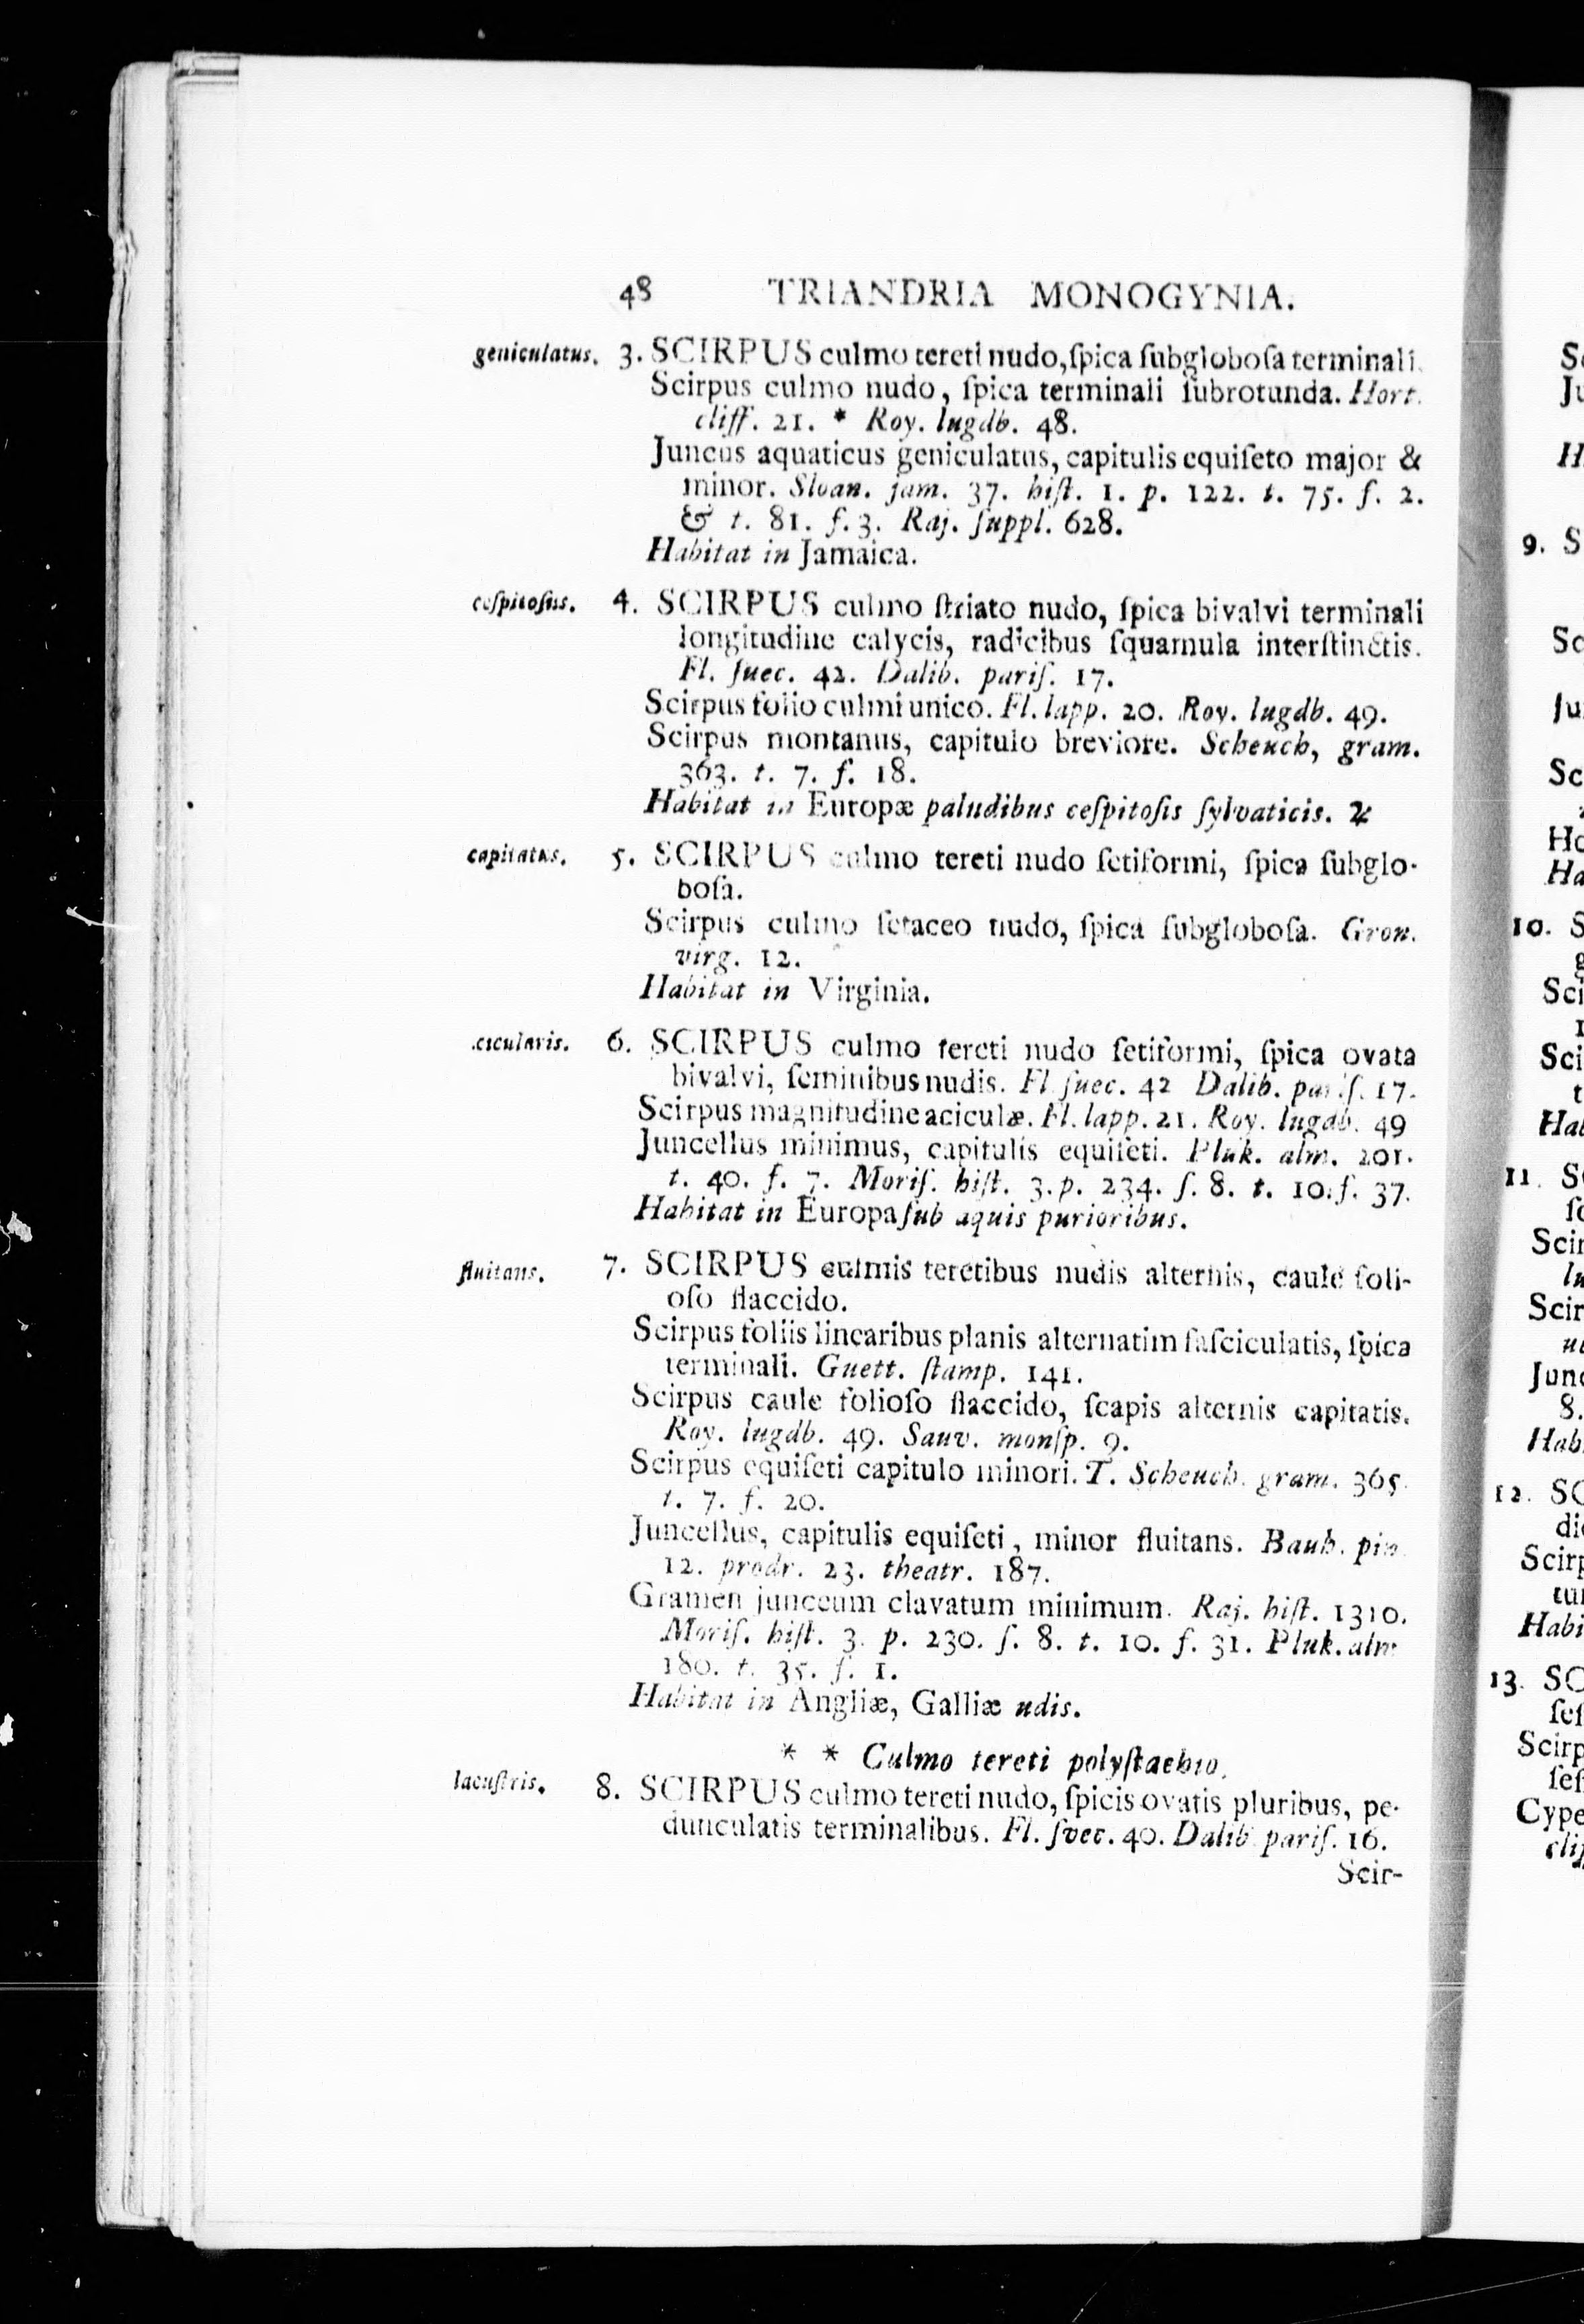 48 TRIANDRIA MONOGYNIA.
geniculatus. 3. SCIRPUS culmo tereti nudo, ſpica ſubgloboſa terminali.
Scirpus culmo nudo, ſpica terminali ſubrotunda. Hort.
cliff. 21. * Roy. lugdb. 48.
Juncus aquaticus geniculatus, capitulis equiſeto major &
minor. Sloan. jam. 37. hiſt. 1. p. 122. t. 75. f. 2.
& t. 81. f. 3. Raj. ſuppl. 628.
Habitat in Jamaica.
ceſpitoſus. 4. SCIRPUS culmo ſtriato nudo, ſpica bivalvi terminali
longitudine calycis, radicibus ſquamula interſtinctis.
Fl. ſuec. 42. Dalib. pariſ. 17.
Scirpus folio culmi unico. Fl. lapp. 20. Roy. lugdb. 49.
Scirpus montanus, capitulo breviore. Scheuch, gram.
363. t. 7. f. 18.
Habitat in Europæ paludibus ceſpitoſis ſylvaticis. ♃
capitatus. 5. SCIRPUS culmo tereti nudo ſetiformi, ſpica ſubglo-
boſa.
Scirpus culmo ſetaceo nudo, ſpica ſubgloboſa. Gron.
virg. 12.
Habitat in Virginia.
cicularis. 6. SCIRPUS culmo tereti nudo ſetiformi, ſpica ovata
bivalvi, ſeminibus nudis. Fl ſuec. 42 Dalib. pariſ. 17.
Scirpus magnitudine aciculæ. Fl. lapp. 21. Roy. lugdb. 49
Juncellus minimus, capitulis equiſeti. Pluk. alm. 201.
t. 40. f. 7. Moriſ. hiſt. 3. p. 234. ſ. 8. t. 10. f. 37.
Habitat in Europa ſub aquis purioribus.
fluitans. 7. SCIRPUS culmis teretibus nudis alternis, caule foli-
oſo flaccido.
Scirpus foliis linearibus planis alternatim faſciculatis, ſpica
terminali. Guett. ſtamp. 141.
Scirpus caule folioſo flaccido, ſcapis alternis capitatis.
Roy. lugdb. 49. Sauv. monſp. 9.
Scirpus equiſeti capitulo minori. T. Scheuch. gram. 365.
t. 7. f. 20.
Juncellus, capitulis equiſeti, minor fluitans. Bauh. pin.
12. prodr. 23. theatr. 187.
Gramen junceum clavatum minimum. Raj. hiſt. 1310.
Moriſ. hiſt. 3. p. 230. ſ. 8. t. 10. f. 31. Pluk. alm
180. t. 35. f. 1.
Habitat in Angliæ, Galliæ udis.
* * Culmo tereti polyſtachio.
lacuſtris. 8. SCIRPUS culmo tereti nudo, ſpicis ovatis pluribus, pe-
dunculatis terminalibus. Fl. ſvec. 40. Dalib pariſ. 16.
Scir-
9. S
10. S
11. S
12. SC
13. SC